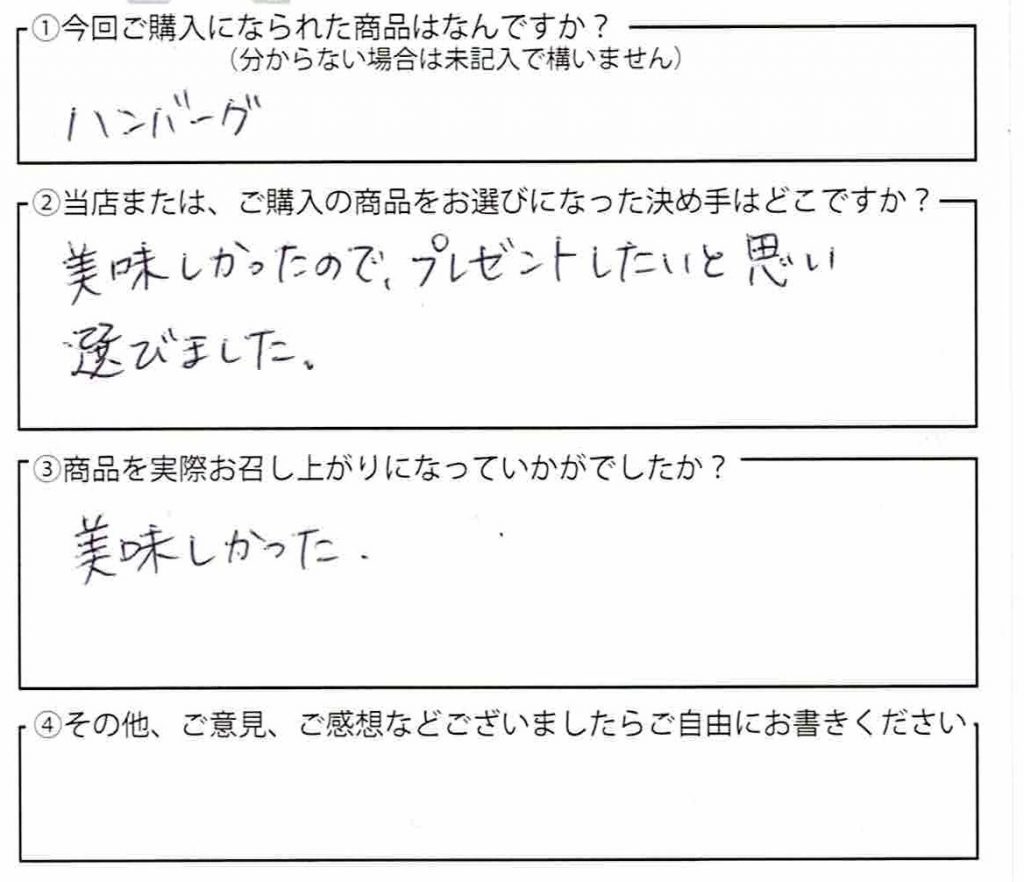 ①今回ご購入になられた商品はなんですか？
（分からない場合は未記入で構いません）
ハンバーグ
②当店または、ご購入の商品をお選びになった決め手はどこですか？
美味しかったので、プレゼントしたいと思い
選びました。
③商品を実際お召し上がりになっていかがでしたか？
美味しかった.
④その他、ご意見、ご感想などございましたらご自由にお書きください